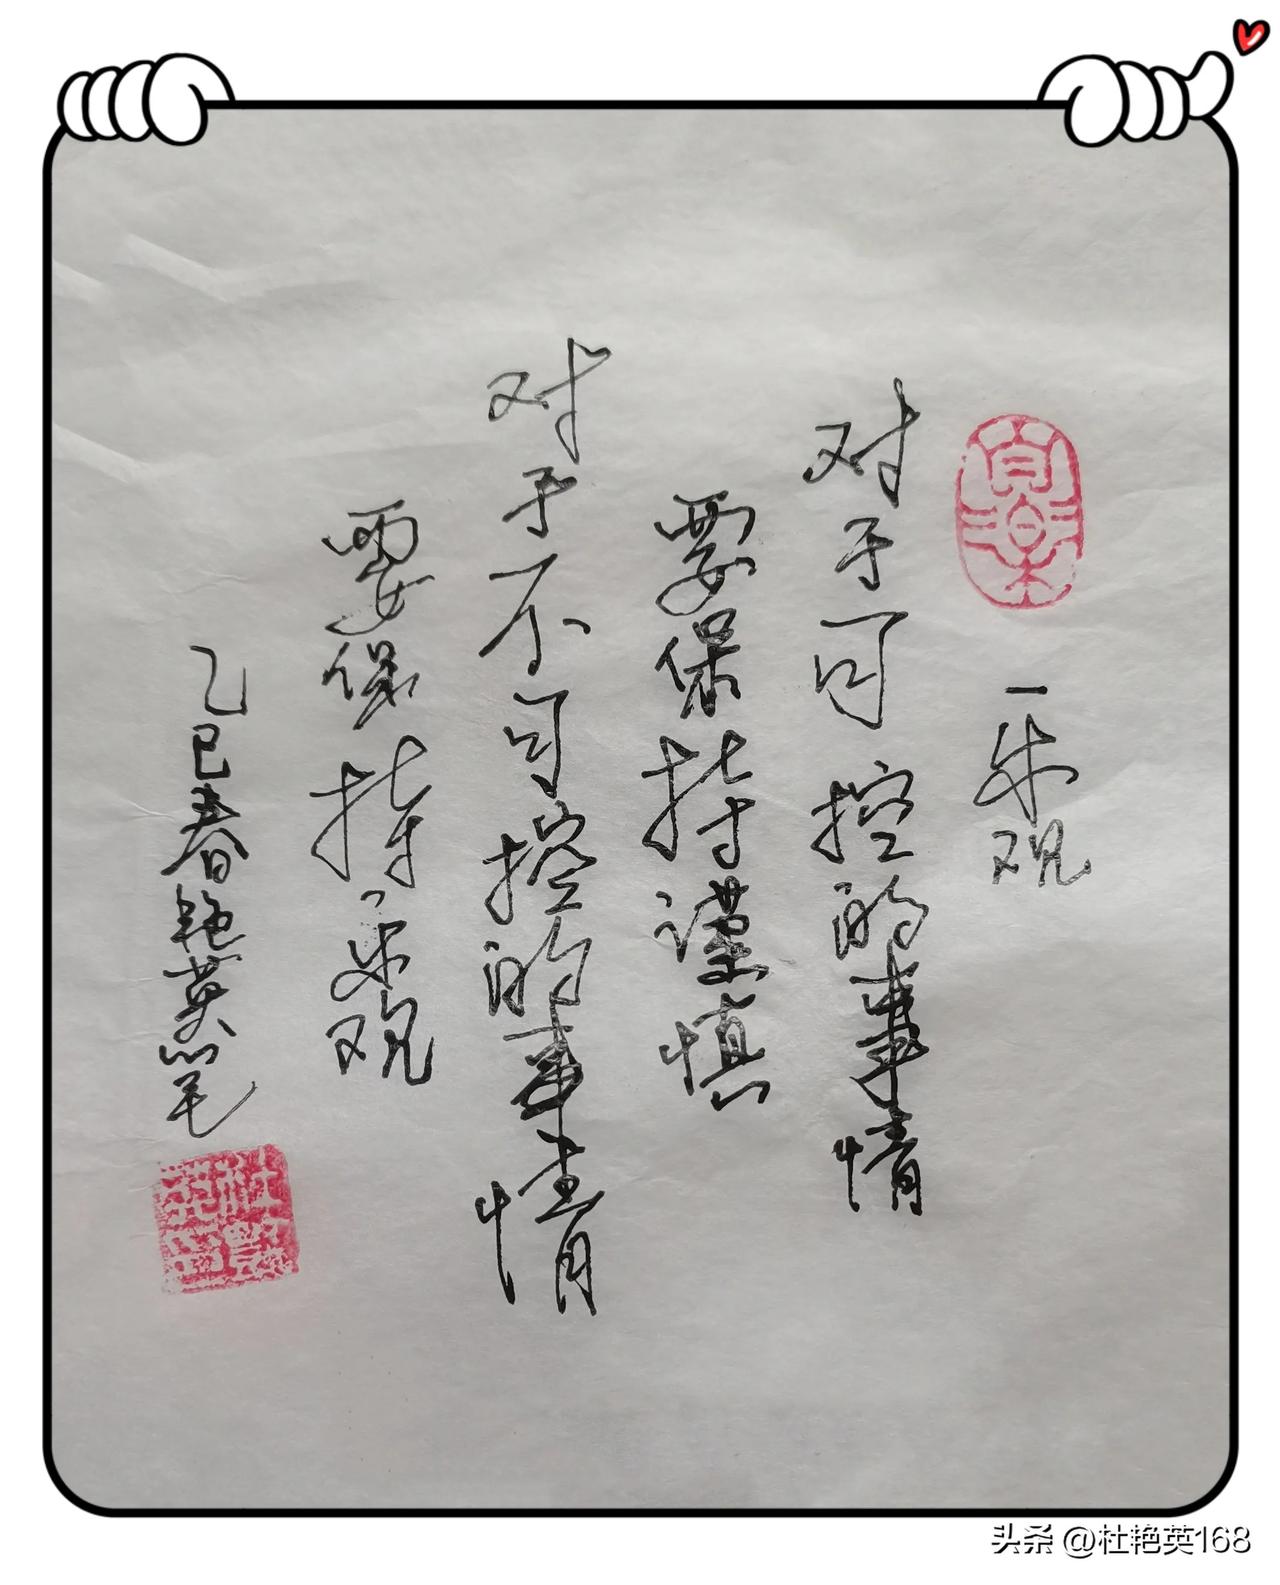 一乐观
对于可控的事情
要保持谨慎
对于不可控的事情
要保持乐观
乙巳春艳英笔
头条 @杜艳英168